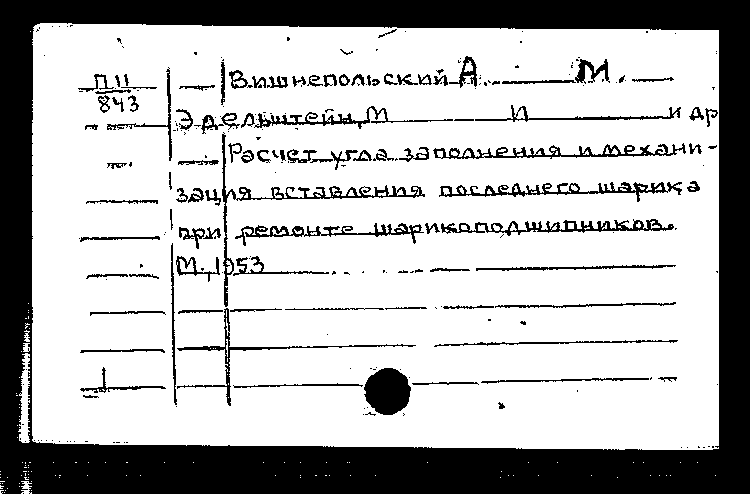 П11
843
Вишнепольский А. М.
Эдельштейн, М И и др
Расчет угла заполнения и механи-
зация вставления последнего шарика
при ремонте шарикоподшипников.
М., 1953
1